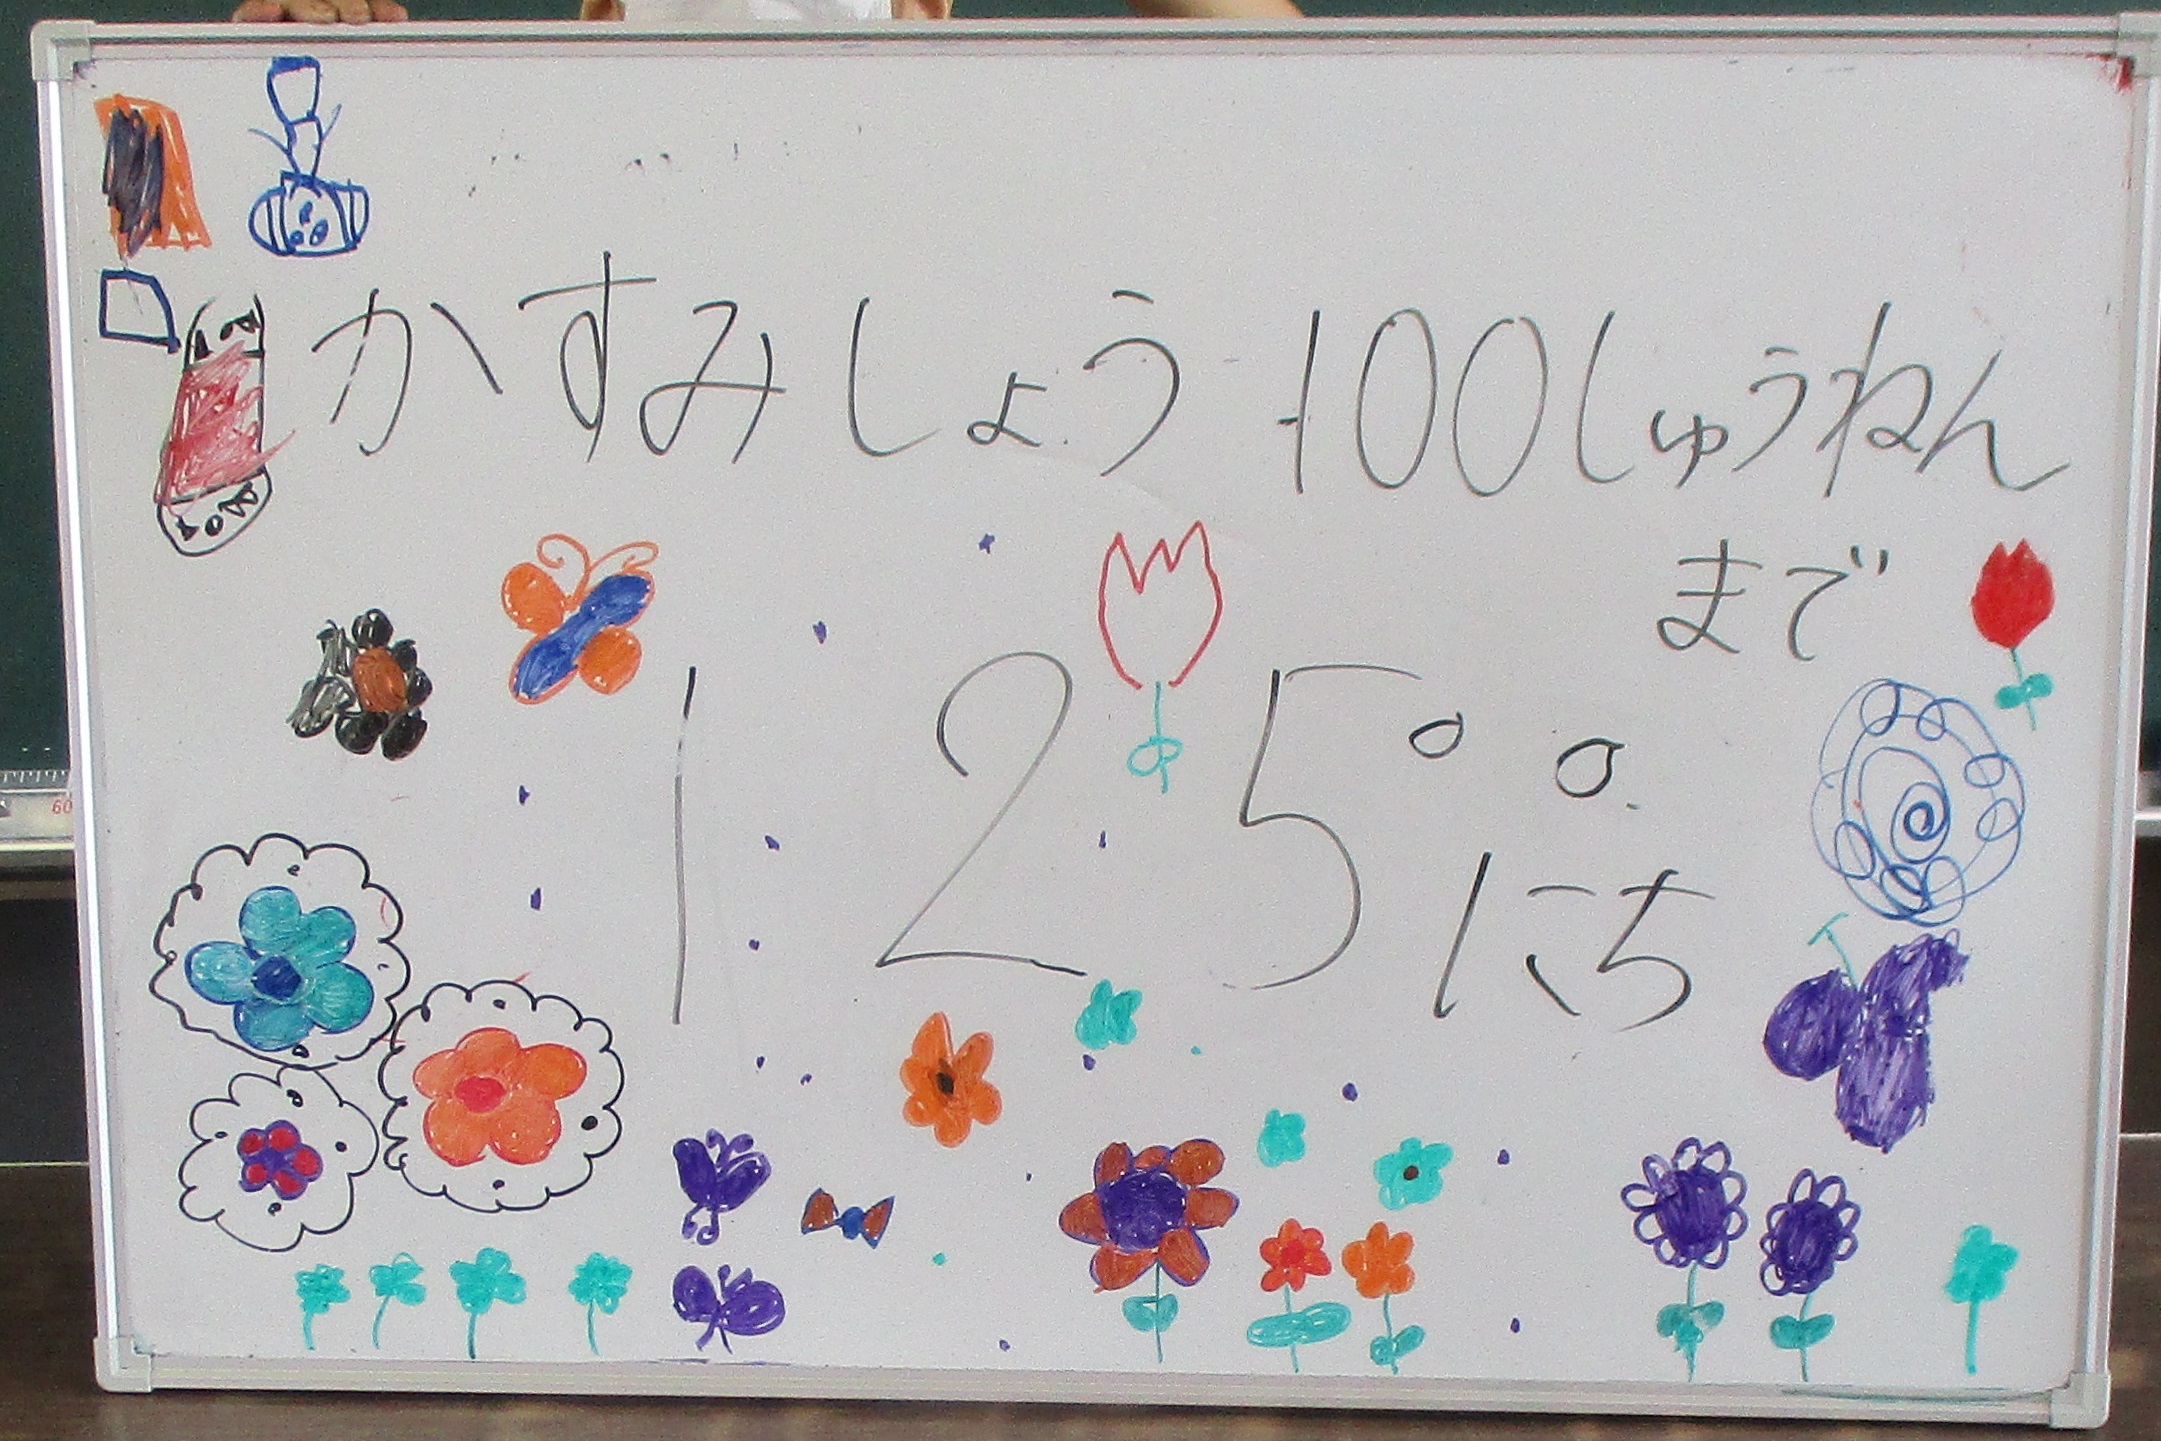 かすみしょう100しゅうねん
まで
125にち
60